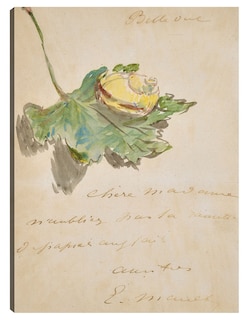 Bellevue
chère madame
n'oubliez pas la remise
d. papier anglais
amitiés
E. Manet